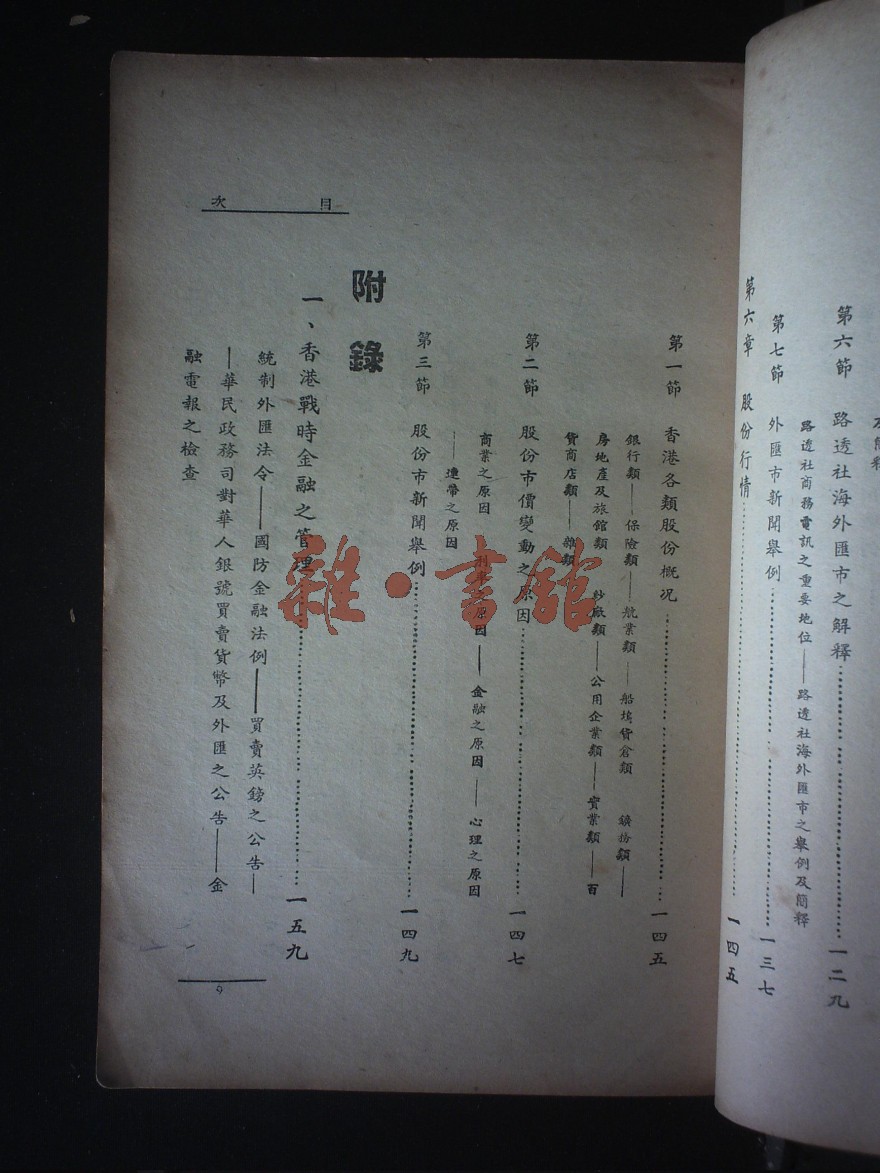 第六節　路透社海外匯市之解釋……一二九
路透社商務電訊之重要地位——路透社海外匯市之舉例及簡釋
第七節　外匯市新聞舉例……一三七
第六章　股份行情……一四五
目次
第一節　香港各類股份概況……一四五
銀行類——保險類——航業類——船塢貨倉類　鑛務類——
房地產及旅館類　紗廠類——公用企業類——實業類——百
貨商店類——雜類
第二節　股份市價變動之原因……一四七
商業之原因　刑事之原因——金融之原因——心理之原因
——連帶之原因
第三節　股份市新聞舉例……一四九
附錄
一、香港戰時金融之管理……一五九
統制外匯法令——國防金融法例——買賣英鎊之公告—
—華民政務司對華人銀號買賣貨幣及外匯之公告——金
融電報之檢查
9
雜·書館